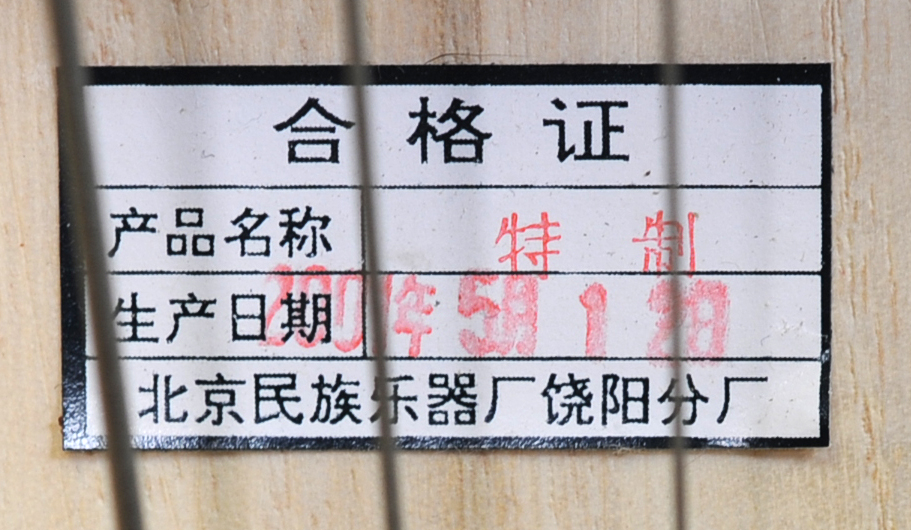 合格证
产品名称 特制
生产日期 2001年5月1 日
北京民族乐器厂饶阳分厂